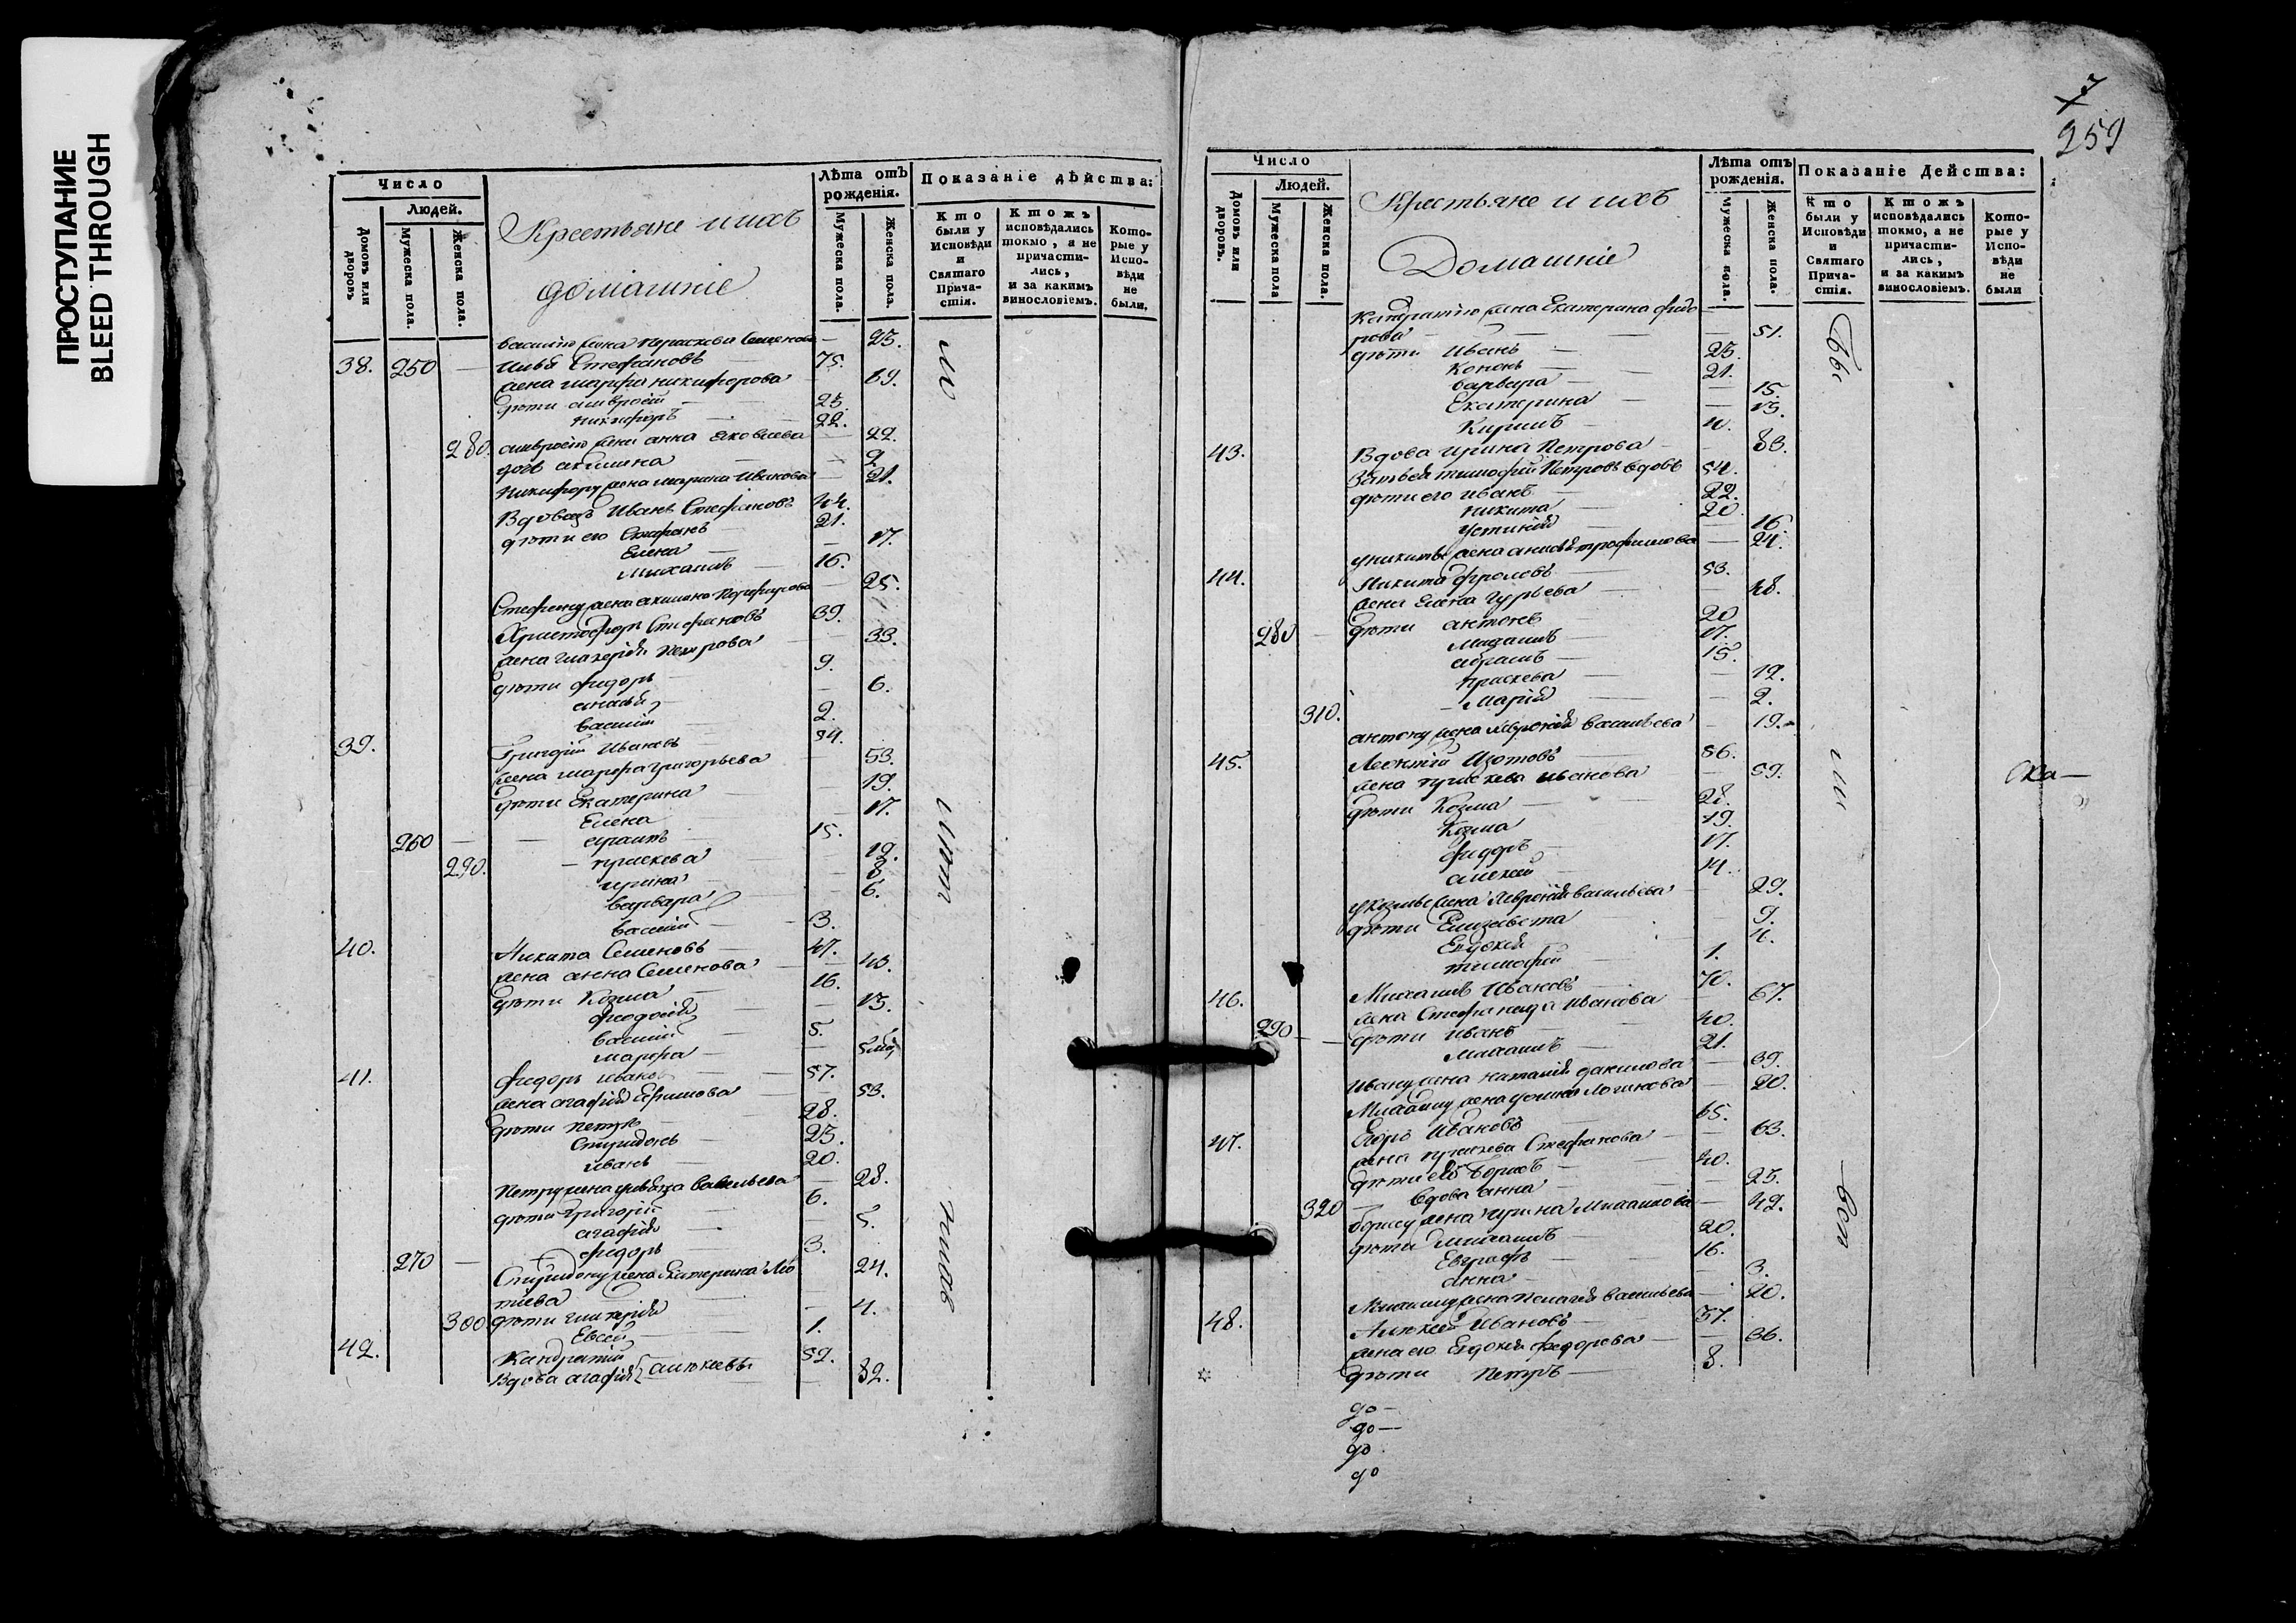 ПРОСТУПАНИЕ
BLEED THROUGH
Число
Людей.
Домовъ или дворовъ
Мужеска пола.
Женска пола.
Крестьяне и ихъ
домашніе
Лѣта отъ рожденія.
Мужеска пола.
Женска пола.
Показаніе дѣйства:
Кто были у Исповѣди и Святаго Причастія.
Ктожъ исповѣдались токмо, а не причастились, и за какимъ винословіемъ.
Которые у Исповѣди не были.
василію жена праскева Семенова — 23.
38. 250 — Илья Стефановъ 75.
жена марфа никифорова 69.
дѣти амвросій 23.
никифоръ 22.
280. амвросію жена анна Яковлева 22.
дочь акилина 2
никифору жена марина Иванова 21.
Вдовецъ Иванъ Стефановъ 44.
дѣти его Стефанъ 21.
Елена 17.
михаилъ 16.
Стефану жена акилина Порфирова 25.
Христофоръ Стефановъ 39.
жена гликерія Петрова 33.
дѣти федоръ 9.
6.
василій 2.
39. Григорій Ивановъ 54.
жена марфа григорьева 53.
дѣти Екатерина 19.
Елена 17.
260 — 15.
290. праскева 12.
ирина 8.
варвара 6.
василій 3.
40. Никита Семеновъ 47.
жена анна Семенова 43.
дѣти Козма 16.
Феодосія 13.
василій 5.
марфа
41. федоръ иванов 57.
жена агафія Ефимова 53.
дѣти петръ 28.
Спиридонъ 23.
иванъ 20.
Петру жена Савельева 28.
дѣти григорій 6.
агафія 5.
федоръ 3.
270 — Спиридону жена Екатерина 24.
тіева
300. дѣти гликерія 4.
Евсей 1.
42. Кандратій 52.
Вдова агафія алексѣевы 82.
7
259
Число
Людей.
Домовъ или дворовъ.
Мужеска пола
Женска пола.
Крестьяне и ихъ
Домашніе
Лѣта отъ рожденія.
Мужеска пола.
Женска пола.
Показаніе Дейсшва:
Кто были у Исповѣди и Святаго Причастія.
Ктожъ исповѣдались токмо, а не причастились, и за какимъ винословіемъ.
Которые у Исповѣди не были
Кандратію жена Екатерина федо
рова 51.
дѣти Иванъ 23.
Кононъ 21.
варвара 15.
Екатерина 13.
Кирилъ 4.
43. Вдова ирина Петрова 83.
Зятья тимофей Петровъ вдовъ 54.
дѣти его иванъ 22.
никита 20
16.
у никиты жена трофимова 24.
44. Никита фроловъ 53.
жена Елена гурьева 48.
280 — дѣти антонъ 20
Михаилъ 17.
абрамъ 15.
праскева 12.
310. Марія 2.
антону жена васильева 19.
45. Леонтій Изотовъ 56.
жена праскева иванова 59.
дѣти Козма 28.
Козма 19.
федоръ 17.
алексей 14.
у козмы жена васильева 29.
дѣти Елизавета 9.
Евдокія 4.
тимофей 1.
46. Михаилъ Ивановъ 70.
жена Стефанида иванова 67.
290 — дѣти иванъ 40.
Михаилъ 21.
Ивану жена наталія данилова 39.
Михаилу жена Логинова 20.
47. Егоръ Ивановъ 65.
жена праскева Стефанова 63.
дѣти его Борисъ 40.
вдова анна 23.
320 борису жена ирина Михайлова 42.
дѣти михаилъ 20.
Евграфъ 16.
анна 3.
Михаилу жена Пелагея васильева 20.
48. Алексей Ивановъ 37.
жена его Евдокія федорова 36.
дѣти Петръ 8.
до —
до —
до
до